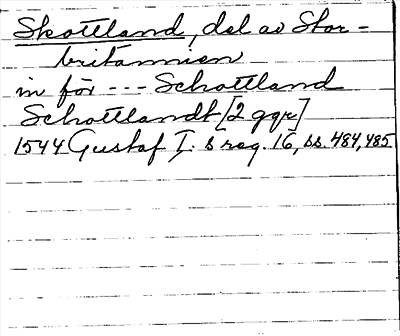 Skottland, del av Stor-
britannien
in för --- Schottland
Schottlandt [2 ggr]
1544 Gustaf I:s reg. 16, ss. 484, 485